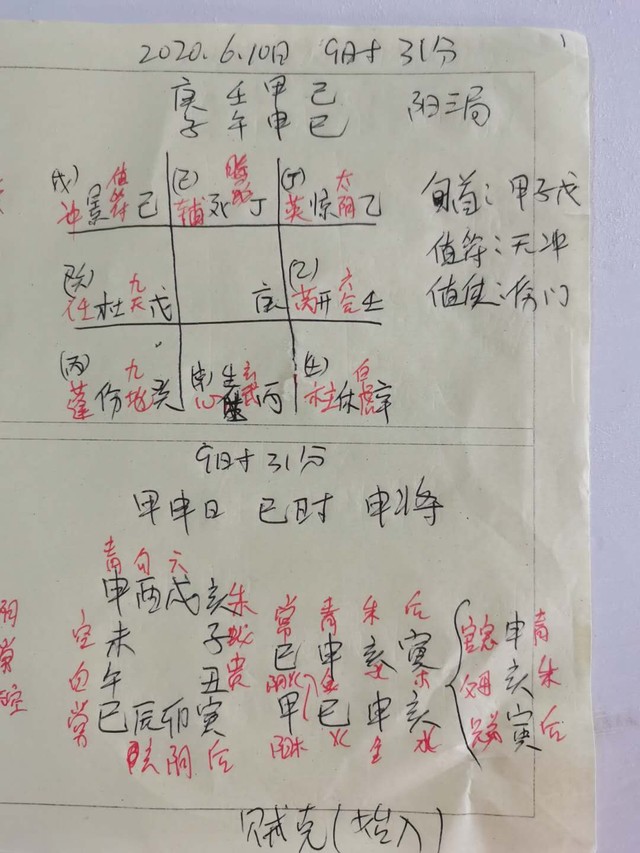 1
2020.6.10日 9时31分
庚 壬 甲 己
子 午 申 巳 阳三局
(戊) 值符 冲景 己
(己) 辅死 丁
(丁) 太阴 英惊 乙
旬首:甲子戊
值符:天冲
值使:伤门
九天 任杜 戊
庚
(乙) 六合 芮开 壬
(丙) 九地 蓬伤 癸
玄武 心生 丙
(壬) 白虎 柱休 辛
9时31分
甲申日 巳时 申将
青 勾 六
申 酉 戌 亥 朱
空 未 子 蛇
白 午 丑 贵
常 巳 辰 卯 寅
玄 阴 后
常 青 朱 后
巳 申 亥 寅
甲 巳 申 亥
阳木 火 金 水
官 申 青
父母 亥 朱
寅 后
贼克(